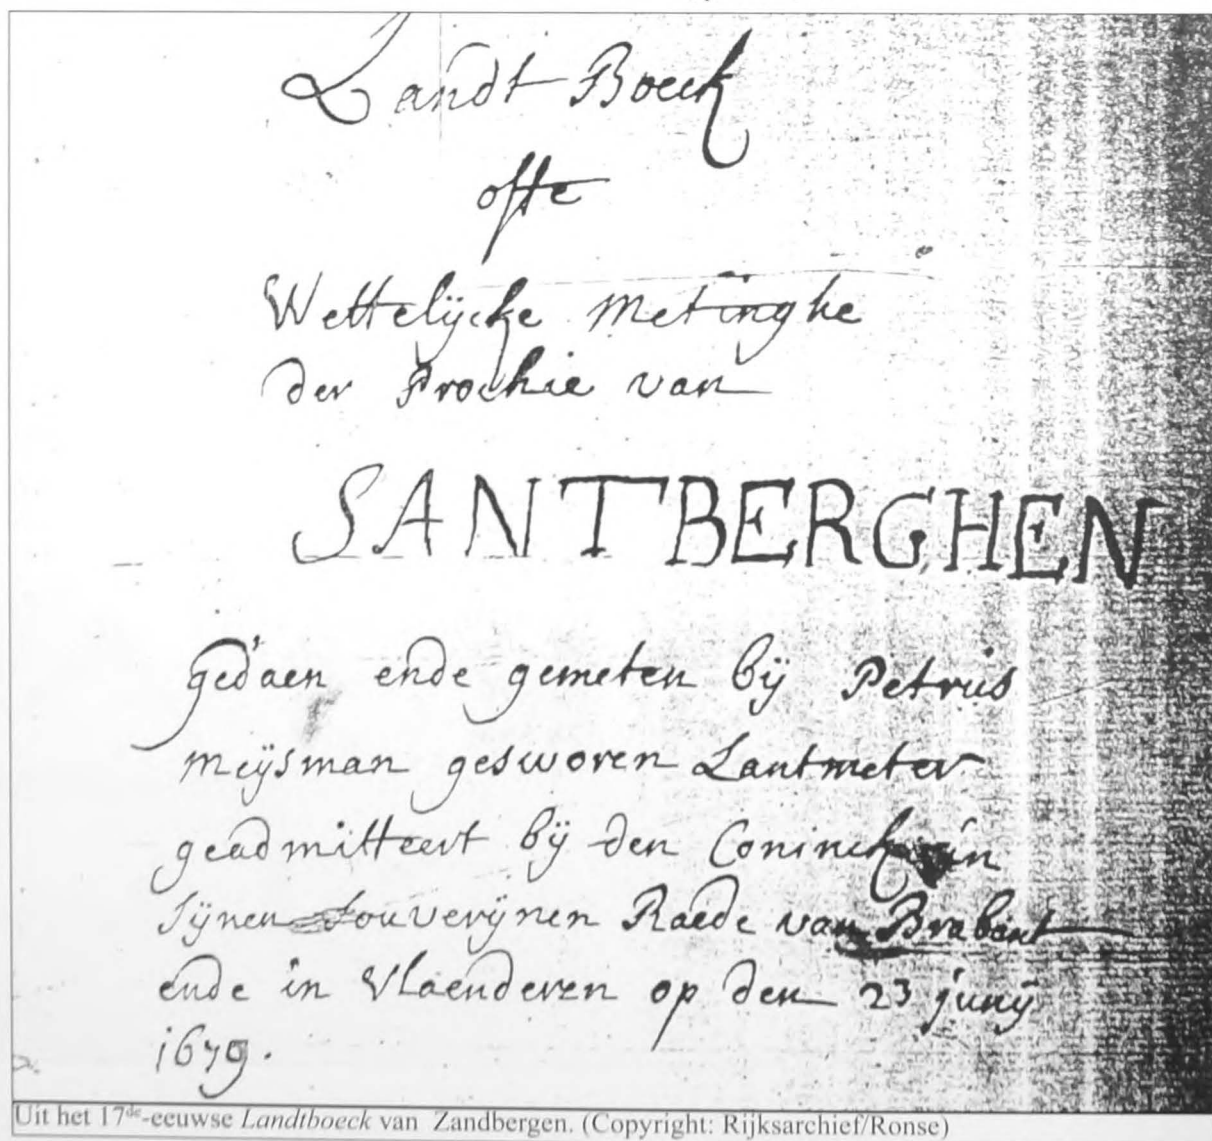 Landt Boeck
ofte
Wettelÿcke Metinghe
der Prochie van
SANTBERGHEN
gedaen ende gemeten bÿ Petrus
Meÿsman gesworen Lantmeter
geadmitteert bÿ den Coninck in
sÿnen souverÿnen Raede van Brabant
ende in Vlaenderen op den 23 junÿ
1679.
Uit het 17de-eeuwse Landtboeck van Zandbergen. (Copyright: Rijksarchief/Ronse)